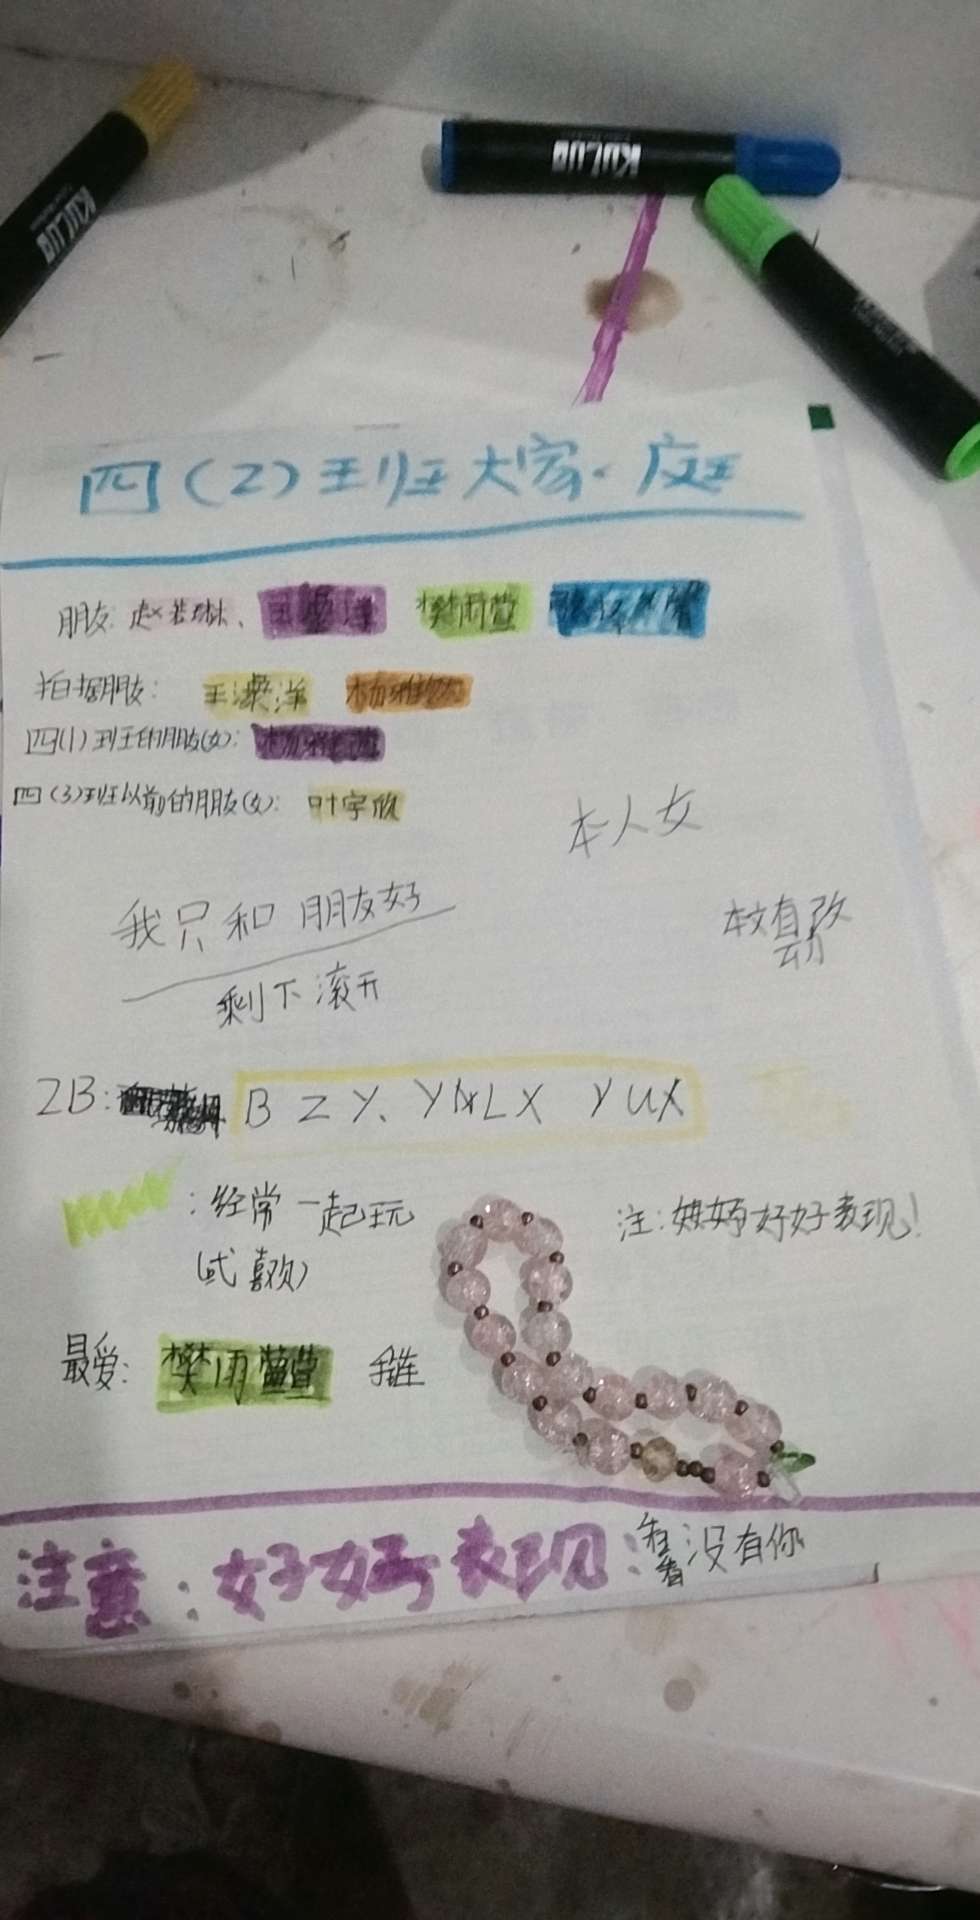 KULUO
KULUO
四(2)班大家庭
朋友: 赵若琳、 王梁洋 樊雨萱
拍据朋友: 王漯洋 杨雅
四(1)班的朋友(女): 杨雅
四(3)班以前的朋友(女): 叶宇欣
本人女
我只和朋友好
本文有改动
剩下滚开
2B: BZY、YLX YUX
: 经常一起玩
(或喜欢)
注: 好好表现!
最爱: 樊雨萱 手链
注意: 好好表现: 看没有你